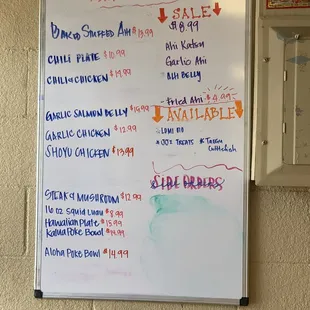 Baked Stuffed Ahi $13.99
Chili Plate $10.99
Chili & Chicken $14.99
Garlic Salmon Belly $14.99
Garlic Chicken $12.99
Shoyu Chicken $13.99
Steak & Mushroom $12.99
16 oz Squid Luau $8.99
Hawaiian Plate $15.99
Kalua Poke Bowl $14.99
Aloha Poke Bowl $14.99
SALE
$8.99
Ahi Katsu
Garlic Ahi
Ahi Belly
- Fried Ahi $4.99
AVAILABLE
Lomi
Treats
* Tako
Cuttlefish
SIDE ORDERS